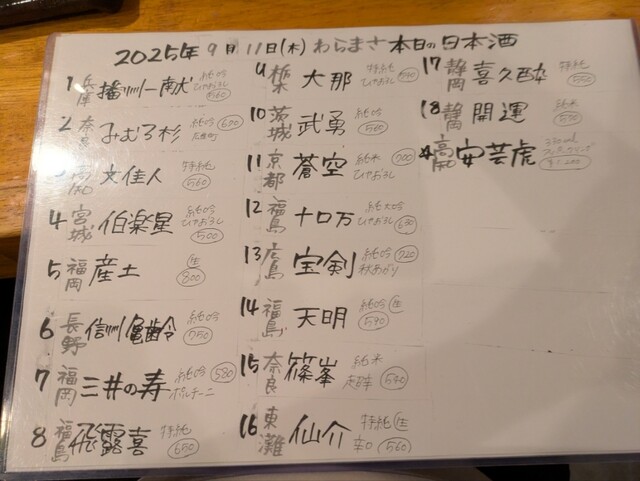 2025年9月11日(木) わらまさ 本日の日本酒
1 兵庫 播州一献 純吟 ひやおろし 560
2 奈良 みむろ杉 純吟 600
3 高知 文佳人 特純 560
4 宮城 伯楽星 純吟 ひやおろし 500
5 福岡 産土 生 800
6 長野 信州亀齢 純吟 750
7 福岡 三井の寿 純吟 580 ポルチーニ
8 福島 飛露喜 特純 650
9 栃木 大那 特純 ひやおろし
10 茨城 武勇 純吟 560
11 京都 蒼空 純米 700 ひやおろし
12 福島 十口万 純大吟 ひやおろし 630
13 広島 宝剣 純吟 720 秋あがり
14 福島 天明 純吟 生 590
15 奈良 篠峯 純米 超辛 540
16 東灘 仙介 特純 生 辛口 560
17 静岡 喜久酔 特純 550
18 静岡 開運 純米
高知 安芸虎 ¥1,200